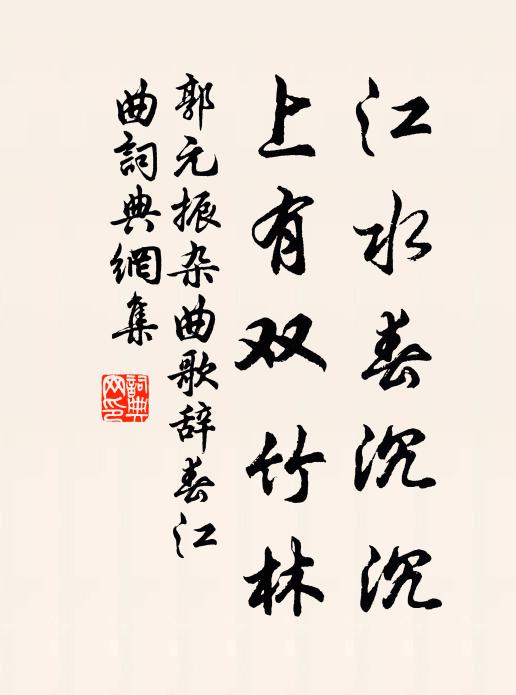 江水春沉沉
上有双竹林
郭元振杂曲歌辞春江
曲詞典網集
詞典网印